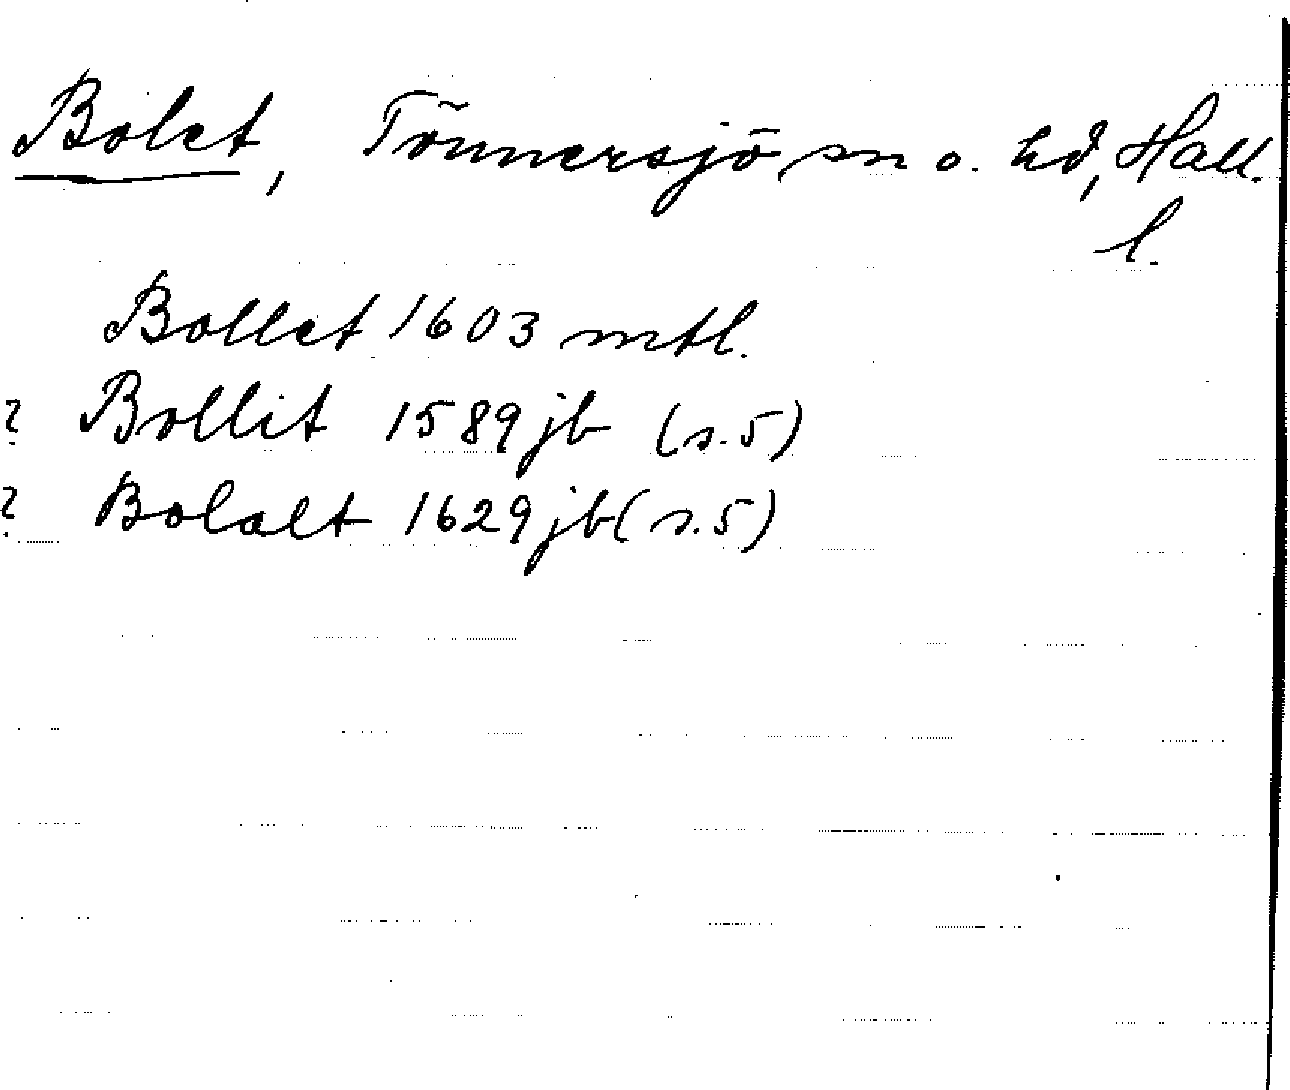 Bolet, Tönnersjö sn o. hd, Hall.
l.
Bollet 1603 mtl.
? Bollit 1589 jb (s. 5)
? Bolalt 1629 jb (s. 5)